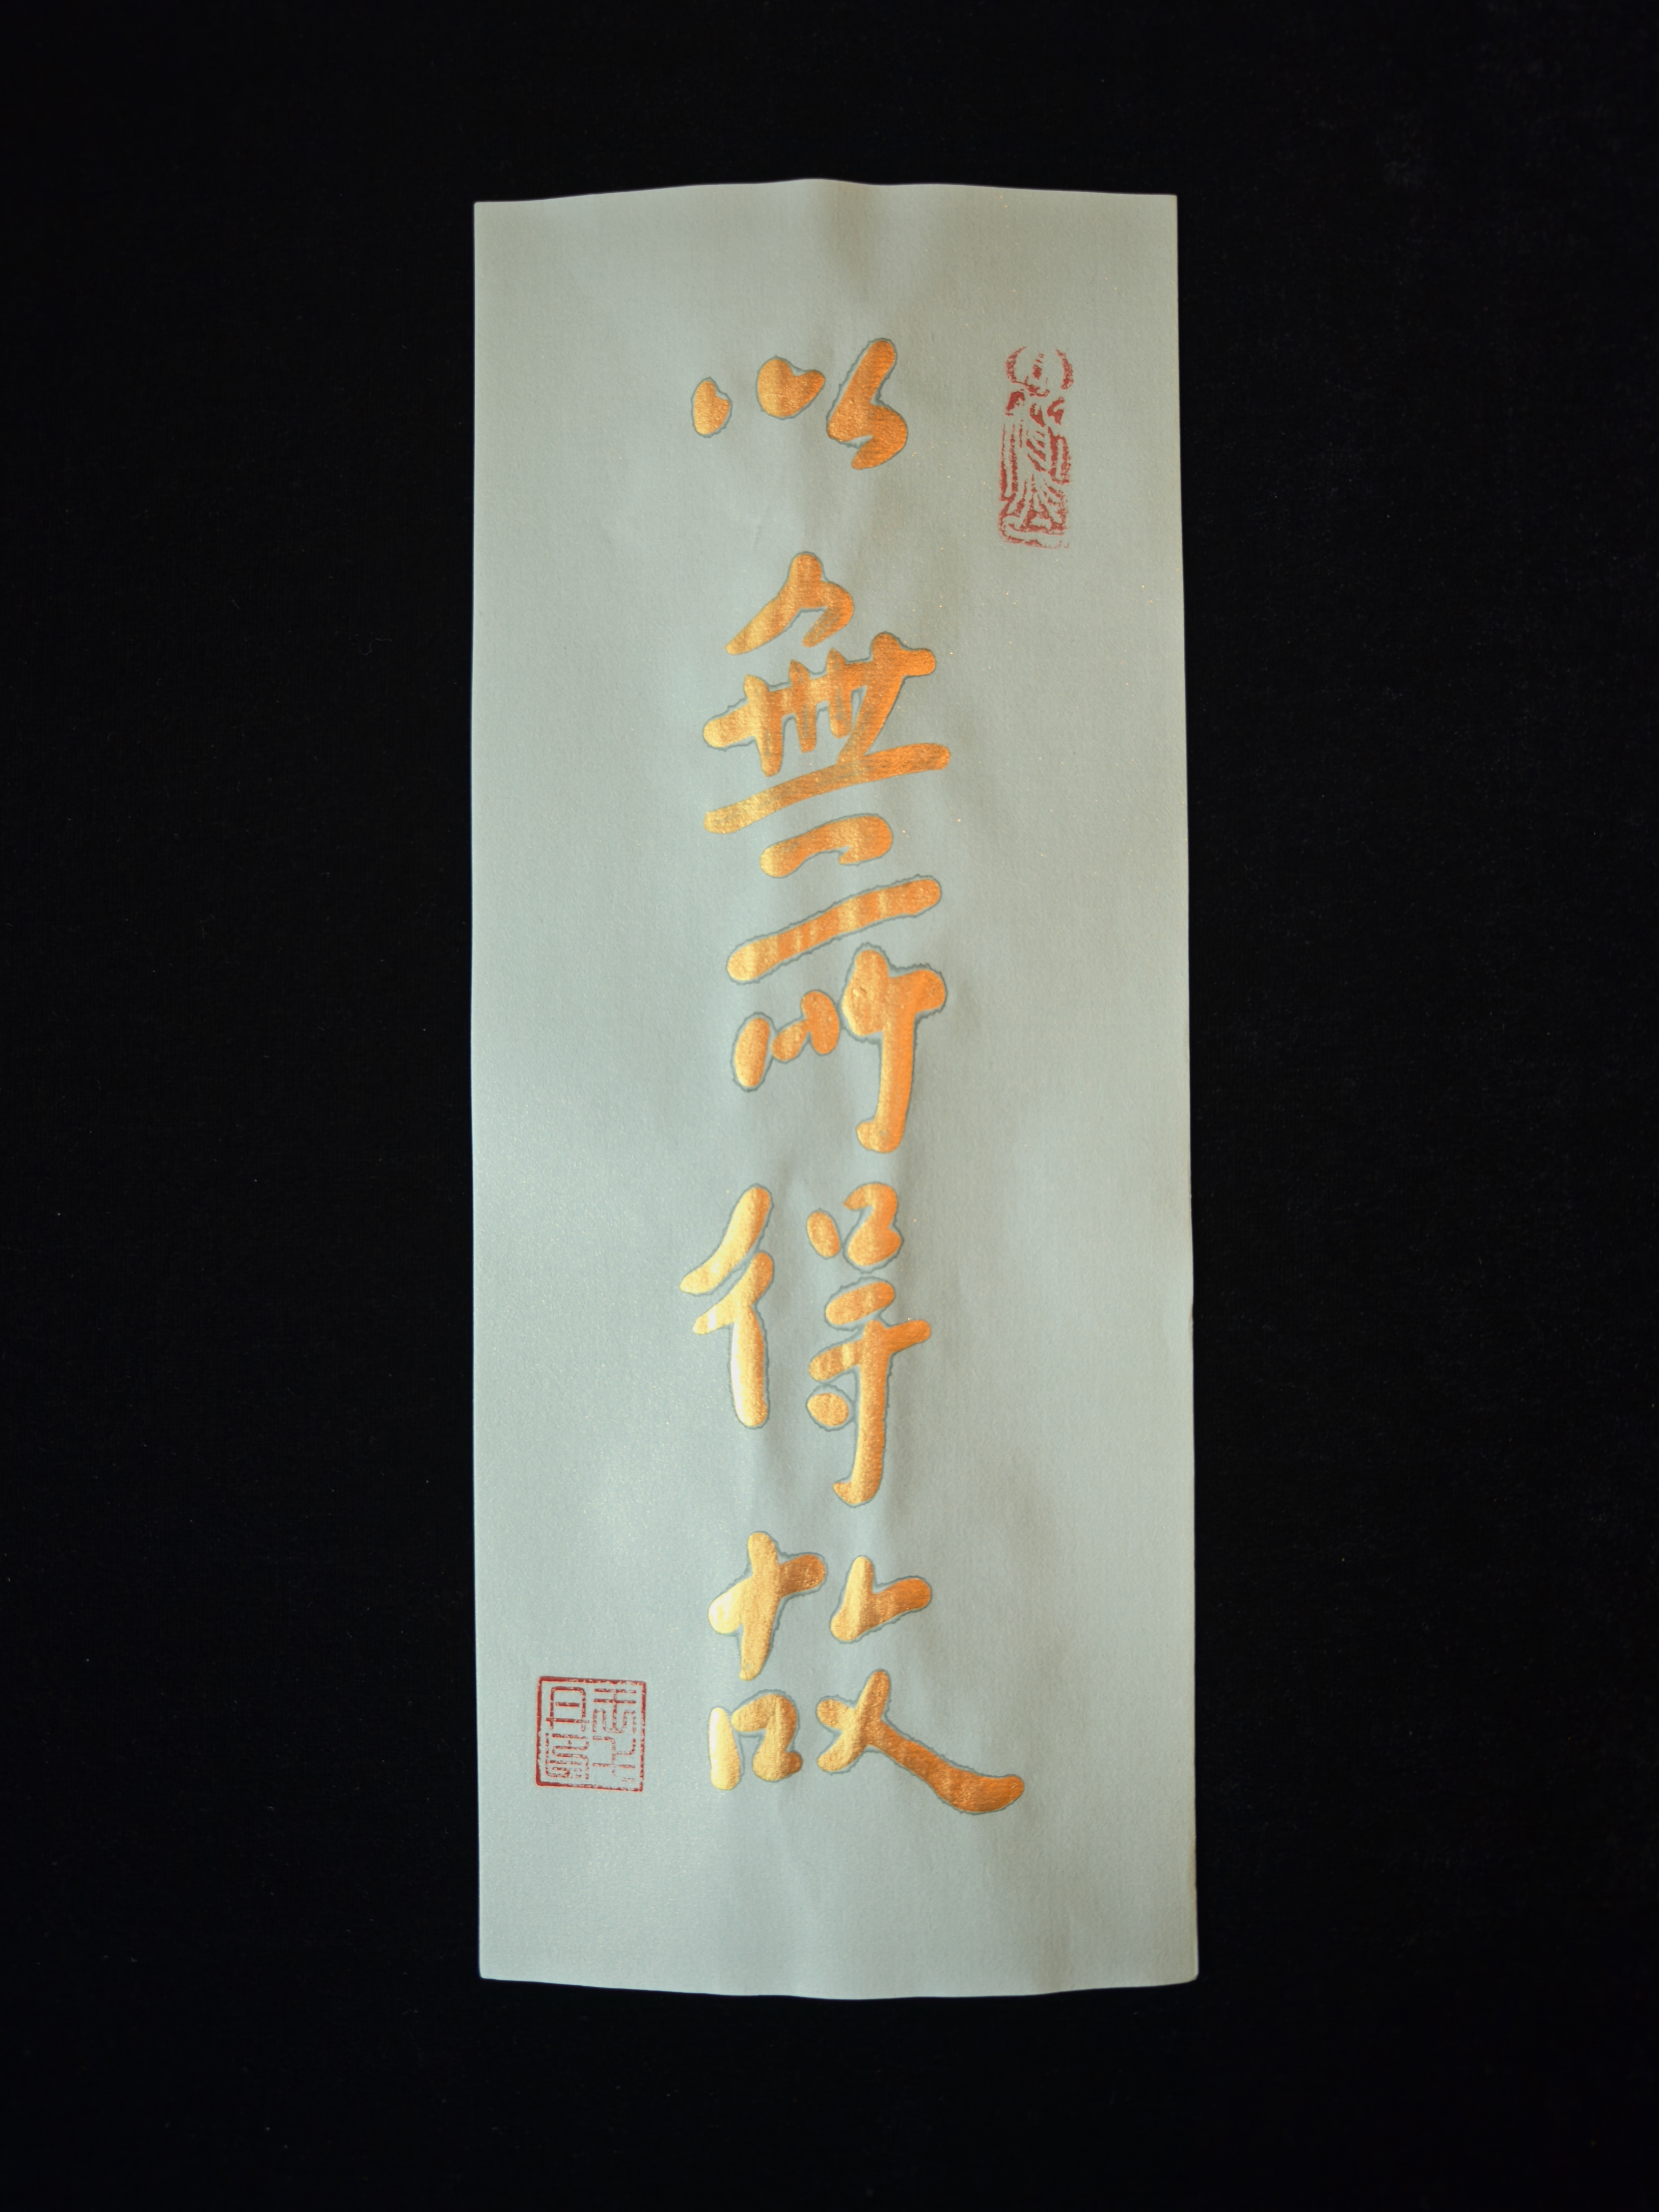 以無所得故